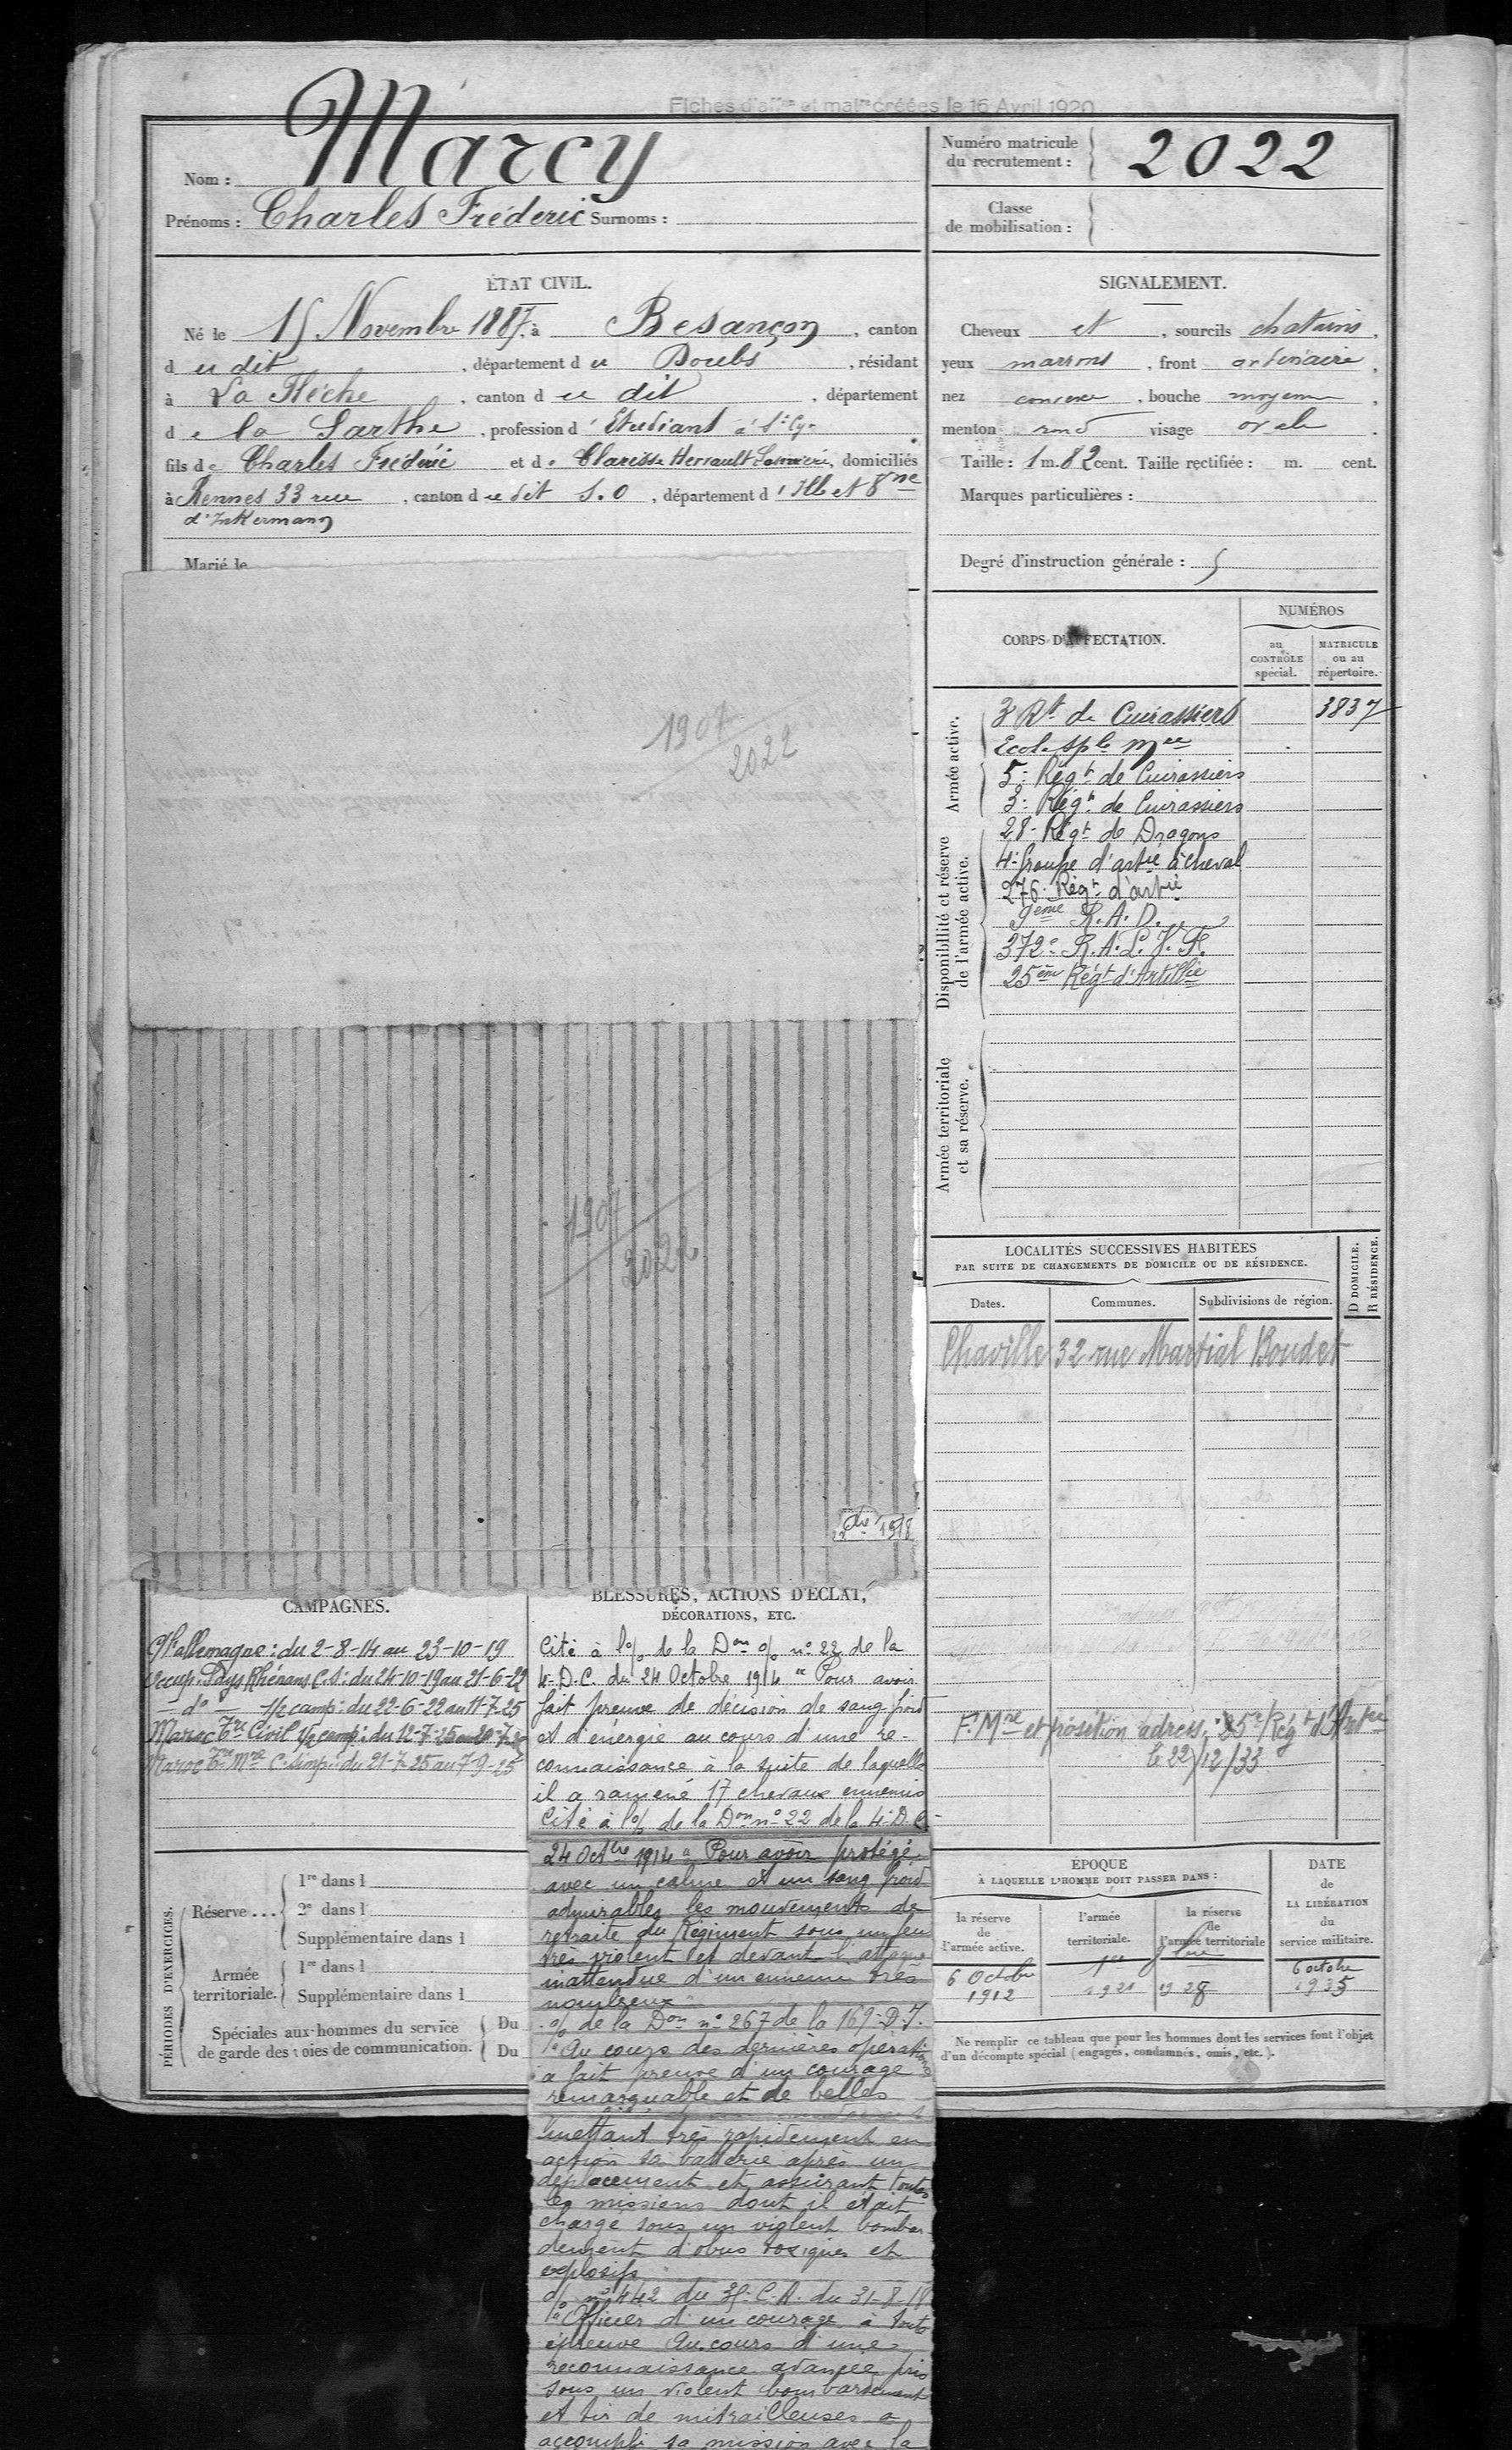 Fiches d'aff<sup>on</sup> et mat<sup>le</sup> créées le 15 Avril 1920
Nom : Marcy
Prénoms : Charles Fréderic Surnoms :
Numéro matricule du recrutement : 2022
Classe de mobilisation :
ÉTAT CIVIL.
Né le 15 Novembre 1887, à Besançon, canton
d u dit, département d u Doubs, résidant
à La Flèche, canton d u dit, département
d e la Sarthe, profession d' Etudiant à St Cyr
fils d e Charles Fréderic et d e Clarisse Herrault, domiciliés
à Rennes 33 rue, canton d u dit S.O, département d' Ille et Vne
d'Inkermann
Marié le
SIGNALEMENT.
Cheveux et, sourcils chatains,
yeux marrons, front ordinaire,
nez convexe, bouche moyenne,
menton rond visage ovale.
Taille : 1 m. 82 cent. Taille rectifiée : m. cent.
Marques particulières :
Degré d'instruction générale : 5
1907
2022
1907
2022
1918
CORPS D'AFFECTATION.
NUMÉROS
au CONTRÔLE spécial.
MATRICULE ou au répertoire.
Armée active.
3 Rt de Cuirassiers 3837
Ecole Sple Mre
5e Régt de Cuirassiers
3e Régt de Cuirassiers
Disponibilité et réserve de l'armée active.
28e Régt de Dragons
4e Groupe d'artie à cheval
276e Régt d'artie
9ème R.A.D.
372e R.A.L.V.F.
25ème Régt d'Artillie
Armée territoriale et sa réserve.
LOCALITÉS SUCCESSIVES HABITÉES
PAR SUITE DE CHANGEMENTS DE DOMICILE OU DE RÉSIDENCE.
Dates. Communes. Subdivisions de région. D DOMICILE. R RÉSIDENCE.
Chaville 32 rue Martial Boudet
F. Mre et position adress. 25e Régt d'Artie
le 22/12/33
CAMPAGNES.
Cte allemagne : du 2-8-14 au 23-10-19
Occup. Pays Rhénans C.S : du 24-10-19 au 21-6-22
do 1/2 camp : du 22-6-22 au 11-7-25
Maroc Tre Civil 1/2 camp : du 12-7-25 au 20-7-25
Maroc Tre Mre C. simp : du 21-7-25 au 7-9-25
BLESSURES, ACTIONS D'ÉCLAT,
DÉCORATIONS, ETC.
Cité à l'o/ de la Don o/ no 22 de la
4e D.C. du 24 Octobre 1914 "Pour avoir
fait preuve de décision de sang froid
et d'énergie au cours d'une re-
connaissance à la suite de laquelle
il a ramené 17 chevaux ennemis
Cité à l'o/ de la Don no 22 de la 4e D.C.
24 Octbre 1914 "Pour avoir protégé
avec un calme et un sang froid
admirables les mouvements de
retraite du Régiment sous un feu
très violent et devant l'attaque
inattendue d'un ennemi très
nombreux"
o/ de la Don no 267 de la 169e D.I.
"Au cours des dernières opérations
a fait preuve d'un courage
remarquable et de belles
mettant très rapidement en
action sa batterie après un
déplacement et assurant toutes
les missions dont il était
chargé sous un violent bombar-
dement d'obus toxiques et
explosifs
o/ no 442 du 35e C.A. du 31-8-18
"Officier d'un courage à toute
épreuve Au cours d'une
reconnaissance avancée pris
sous un violent bombardement
et tir de mitrailleuses a
accompli sa mission avec la
PÉRIODES D'EXERCICES.
Réserve ...
1re dans l
2e dans l
Supplémentaire dans l
Armée territoriale.
1re dans l
Supplémentaire dans l
Spéciales aux hommes du service
de garde des voies de communication.
Du
Du
ÉPOQUE
À LAQUELLE L'HOMME DOIT PASSER DANS :
la réserve de l'armée active.
l'armée territoriale.
la réserve de l'armée territoriale
DATE de LA LIBÉRATION du service militaire.
6 Octobre 1912
1928
6 octobre 1935
Ne remplir ce tableau que pour les hommes dont les services font l'objet
d'un décompte spécial (engagés, condamnés, omis, etc.).